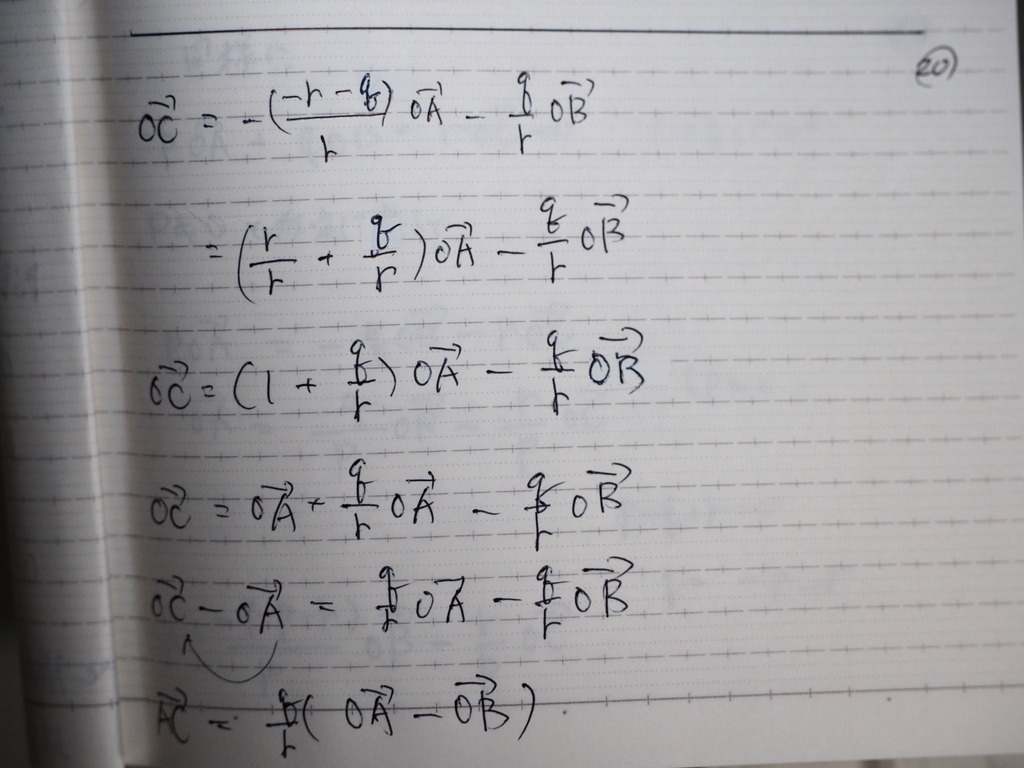 20
$\vec{OC} = -\frac{(-r-q)}{r} \vec{OA} - \frac{q}{r} \vec{OB}$
$= \left(\frac{r}{r} + \frac{q}{r}\right) \vec{OA} - \frac{q}{r} \vec{OB}$
$\vec{OC} = (1 + \frac{q}{r}) \vec{OA} - \frac{q}{r} \vec{OB}$
$\vec{OC} = \vec{OA} + \frac{q}{r} \vec{OA} - \frac{q}{r} \vec{OB}$
$\vec{OC} - \vec{OA} = \frac{q}{r} \vec{OA} - \frac{q}{r} \vec{OB}$
$\vec{AC} = \frac{q}{r} ( \vec{OA} - \vec{OB} )$